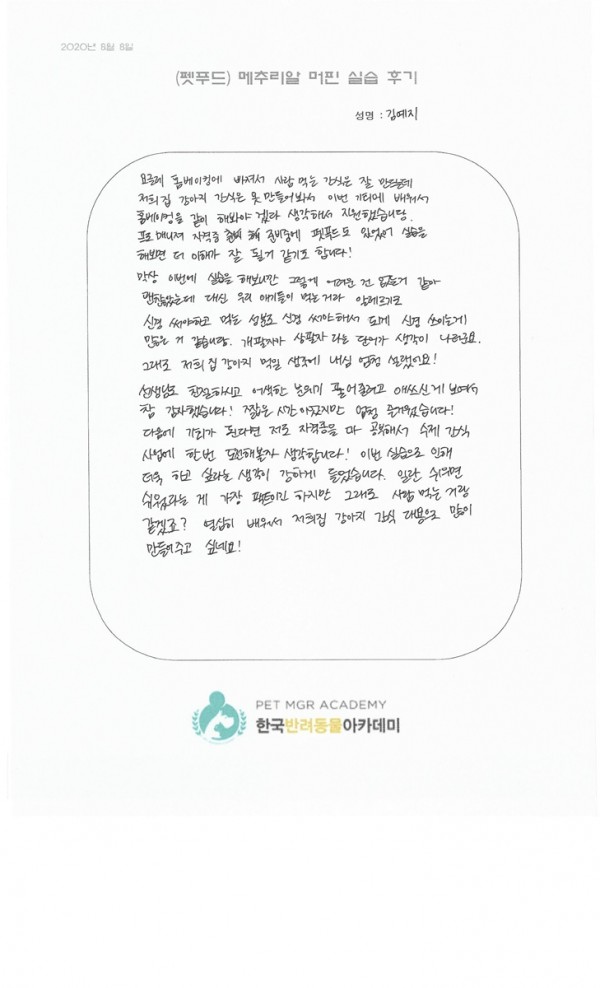 2020년 6월 6일
(펫푸드) 메추리알 머핀 실습 후기
성명 : 김예지
요즘에 홈베이킹에 빠져서 사람 먹는 간식은 잘 만드는데
저희 집 강아지 간식은 못 만들어봐서 이번 기회에 배워서
홈베이킹을 같이 해봐야 겠다 생각해서 지원했습니당.
프로매니저 자격증 준비중에 펫푸드도 있었어서 실습을
해보면 더 이해가 잘 될거 같기도 합니다!
막상 이번에 실습을 해보니깐 그렇게 어려운 건 없는거 같아
괜찮았는데 대신 우리 애기들이 먹는거라 알레르기도
신경 써야하고 먹는 성분도 신경 써야해서 되게 신경 쓰이는게
많은 거 같습니당. 개팔자가 상팔자 라는 단어가 생각이 나더군요.
그래도 저희 집 강아지 먹일 생각에 내심 엄청 설렜어요!
선생님도 친절하시고 어색한 분위기 풀어주려고 애쓰신게 보여서
참 감사했습니다! 짧은 시간이었지만 엄청 즐거웠습니다!
다음에 기회가 된다면 저도 자격증을 마 공부해서 수제 간식
사업에 한번 도전해볼까 생각합니다! 이번 실습으로 인해
더욱 하고 싶다는 생각이 강하게 들었습니다. 일단 쉬우면
쉬웠다는 게 가장 팩트이긴 하지만 그래도 사람 먹는 거랑
같겠죠? 열심히 배워서 저희집 강아지 간식 대용으로 많이
만들어주고 싶네요!
PET MGR ACADEMY
한국반려동물아카데미